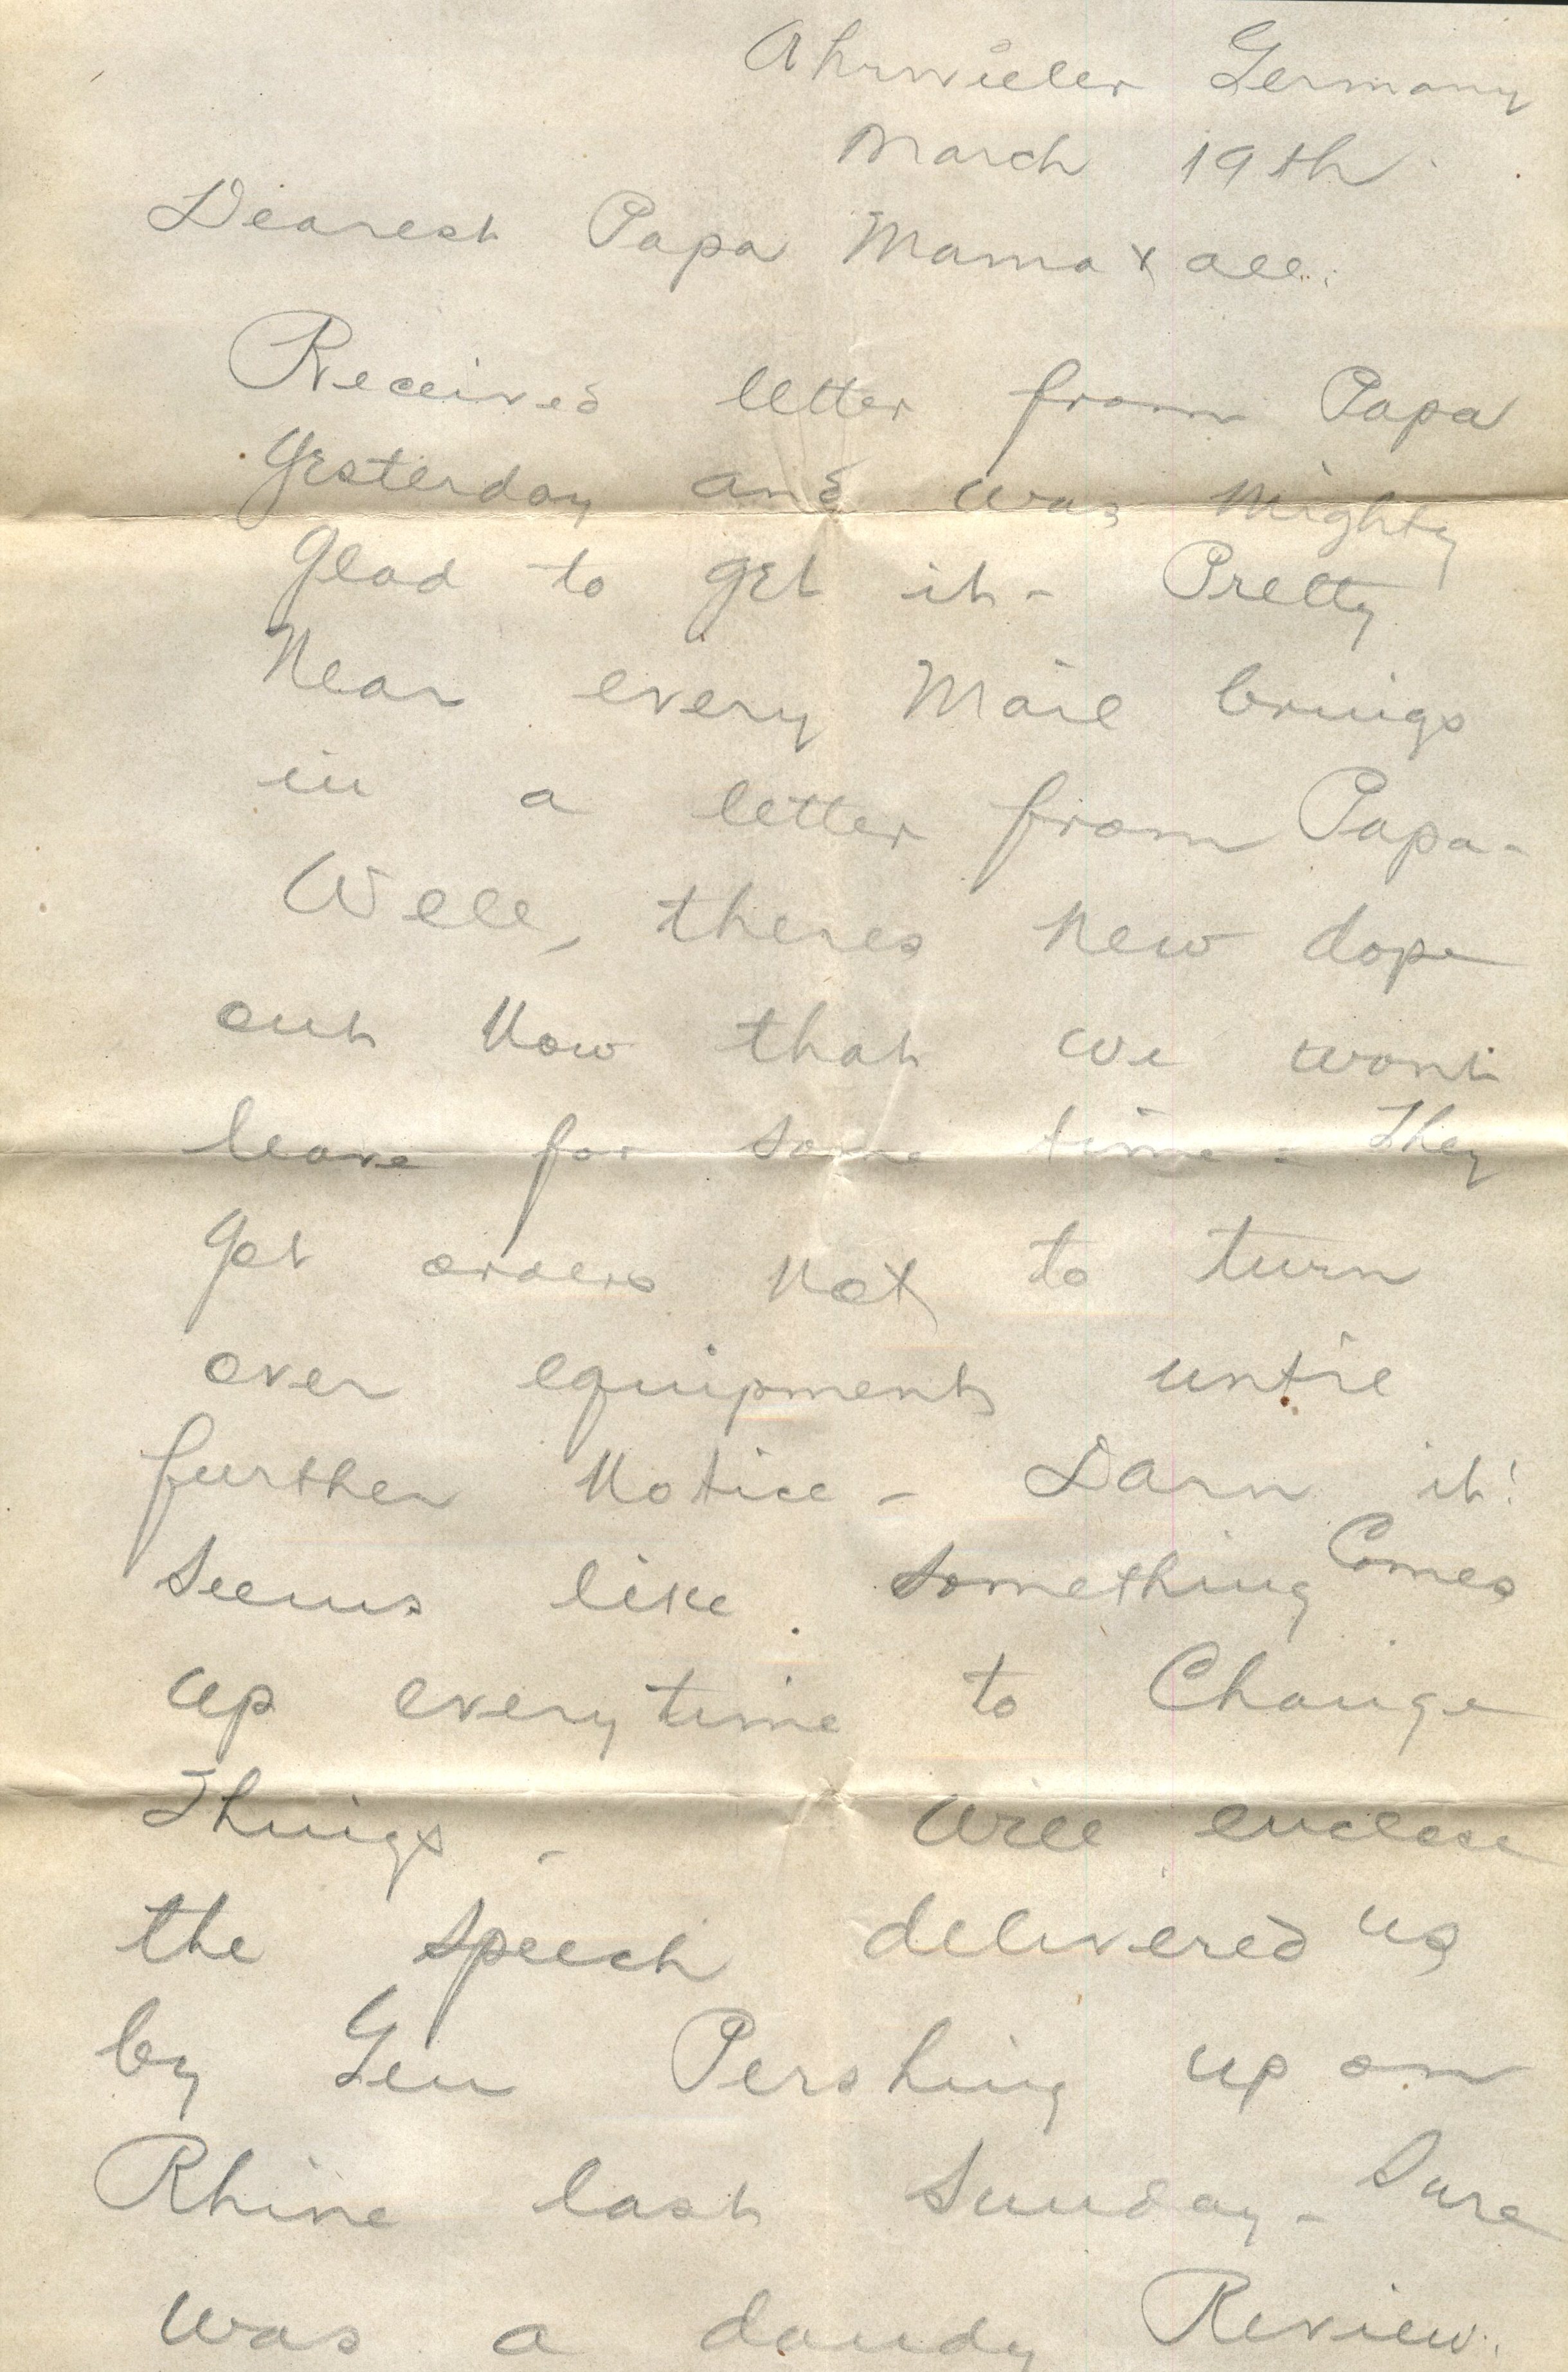 Ahrwieler Germany
March 19th
Dearest Papa Mama & all.
Received letter from Papa
Yesterday and was Mighty
Glad to get it - Pretty
Near every Mail brings
in a letter from Papa -
Well, theres New dope
out Now that we wont
leave for some time - They
Got orders Not to turn
over equipment until
further Notice - Darn it!
Seems like something Comes
up everytime to Change
Things - Will enclose
the speech delivered us
by Gen Pershing up on
Rhine last Sunday - Sure
was a dandy Review.